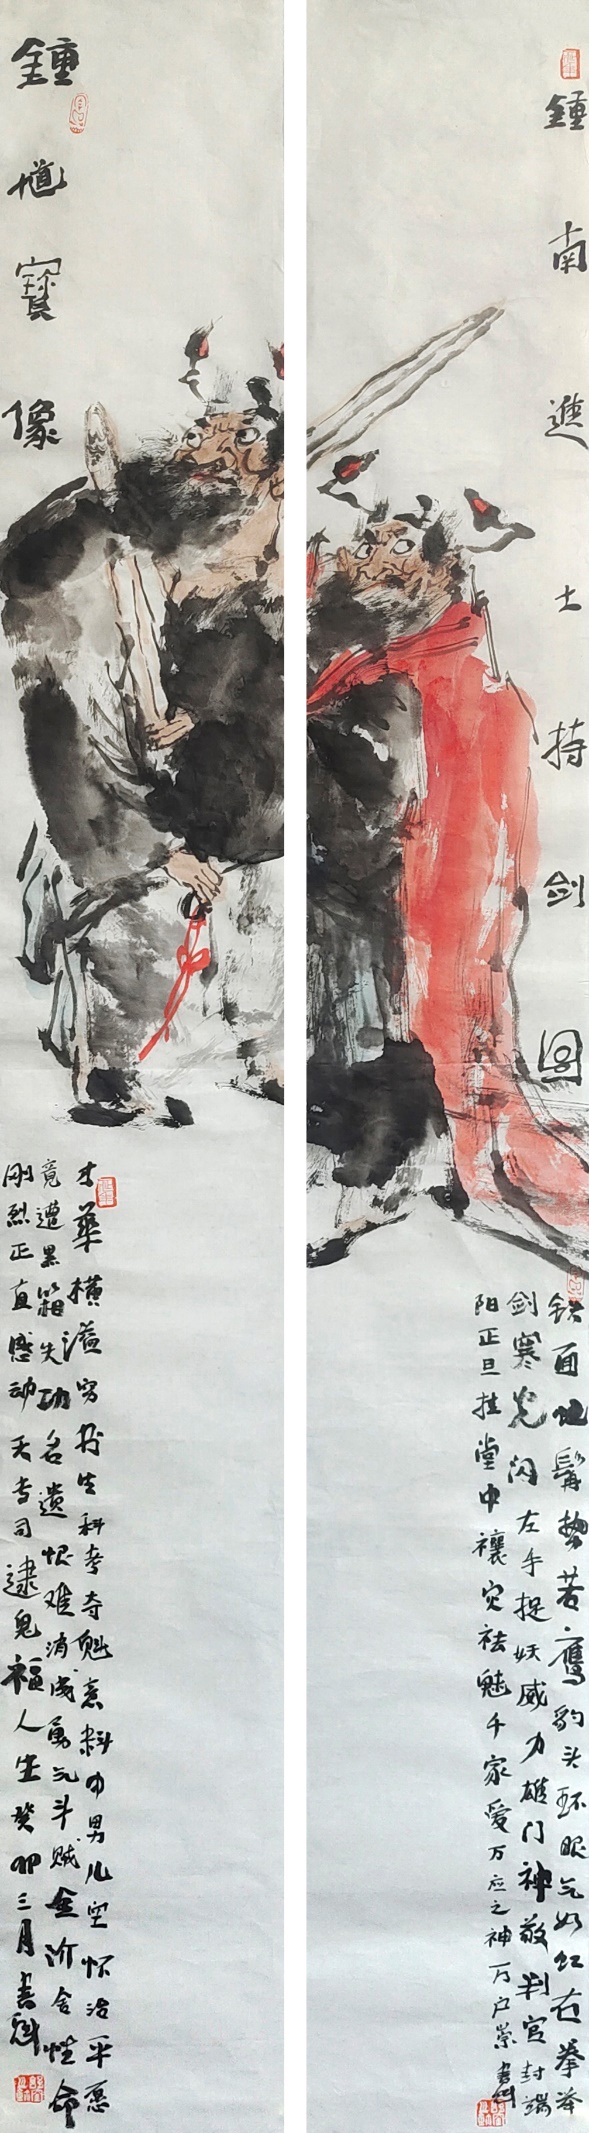 鍾南進士持剑圖
铁面虬髯势若鹰豹头环眼气如虹右拳举
剑寒光闪左手捉妖威力雄门神敬判官封端
阳正旦挂堂中禳灾祛魅千家爱万应之神万户崇 书魁
鍾馗寶像
才華横溢穷书生科考夺魁意料中男儿空怀治平愿
竟遭黑箱失功名遗恨难消成勇气斗贼金阶舍性命
刚烈正直感动天专司逮鬼福人生癸卯三月书魁